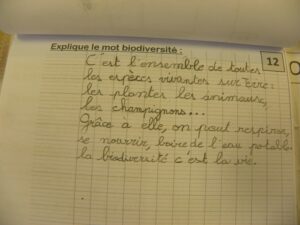 Explique le mot biodiversité :
12
C'est l'ensemble de toutes
les espèces vivantes sur Terre :
les plantes les animaux,
les champignons...
Grâce à elle, on peut respirer,
se nourrir, boire de l'eau potable.
la biodiversité c'est la vie.